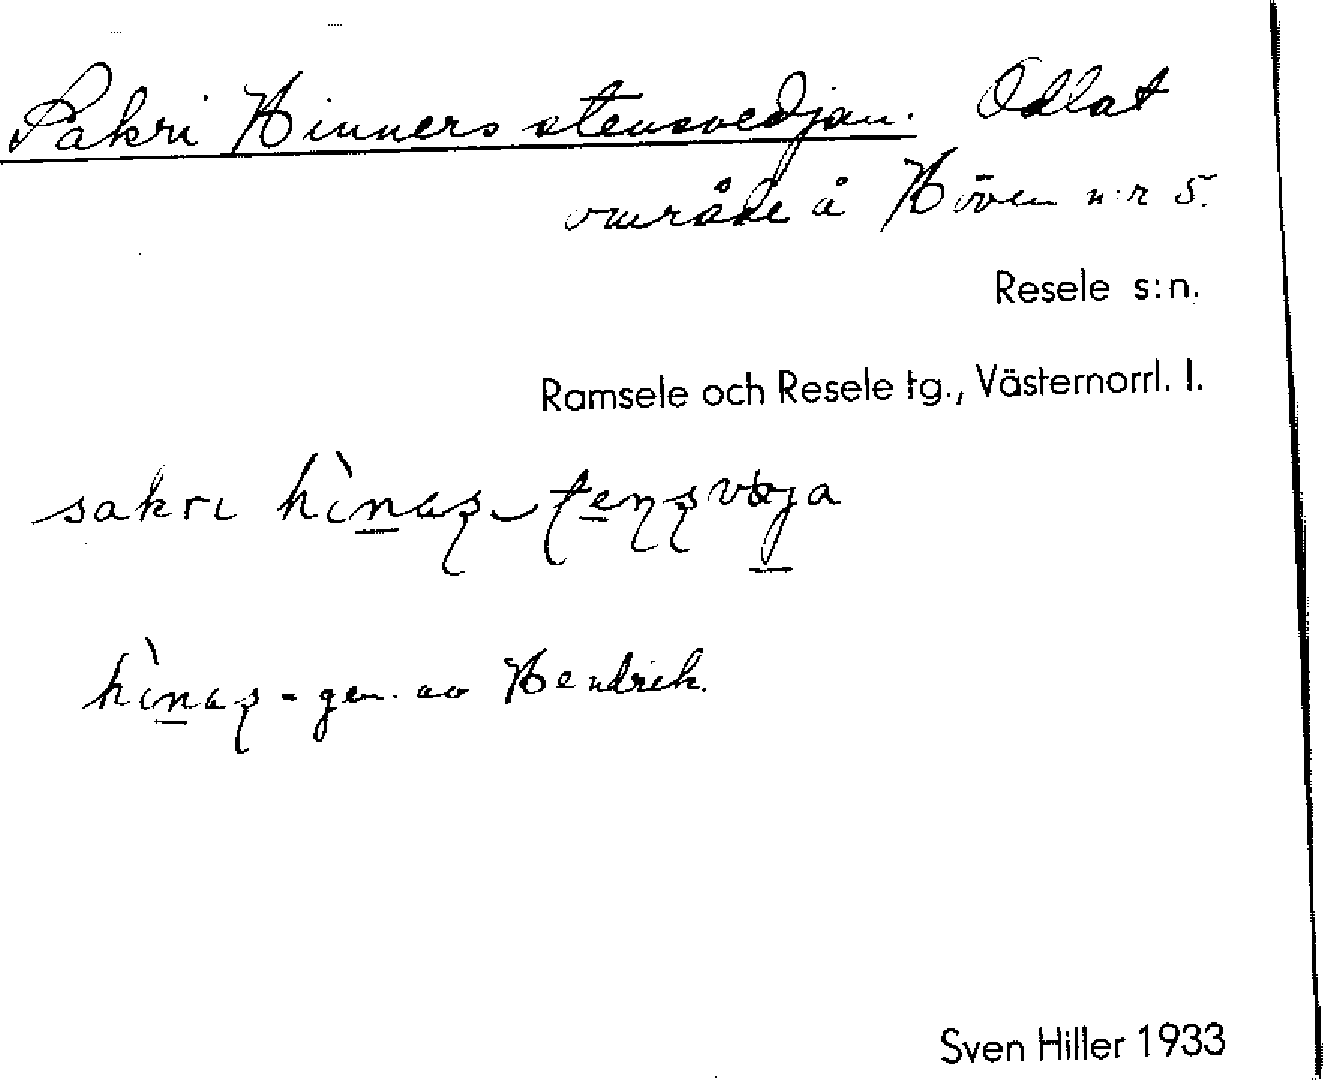 Sakri Hinners stensvedjan. Odlat
område å Höven n:r 5.
Resele s:n.
Ramsele och Resele tg., Västernorrl. l.
sakri
- gen. av Hendrik.
Sven Hiller 1933